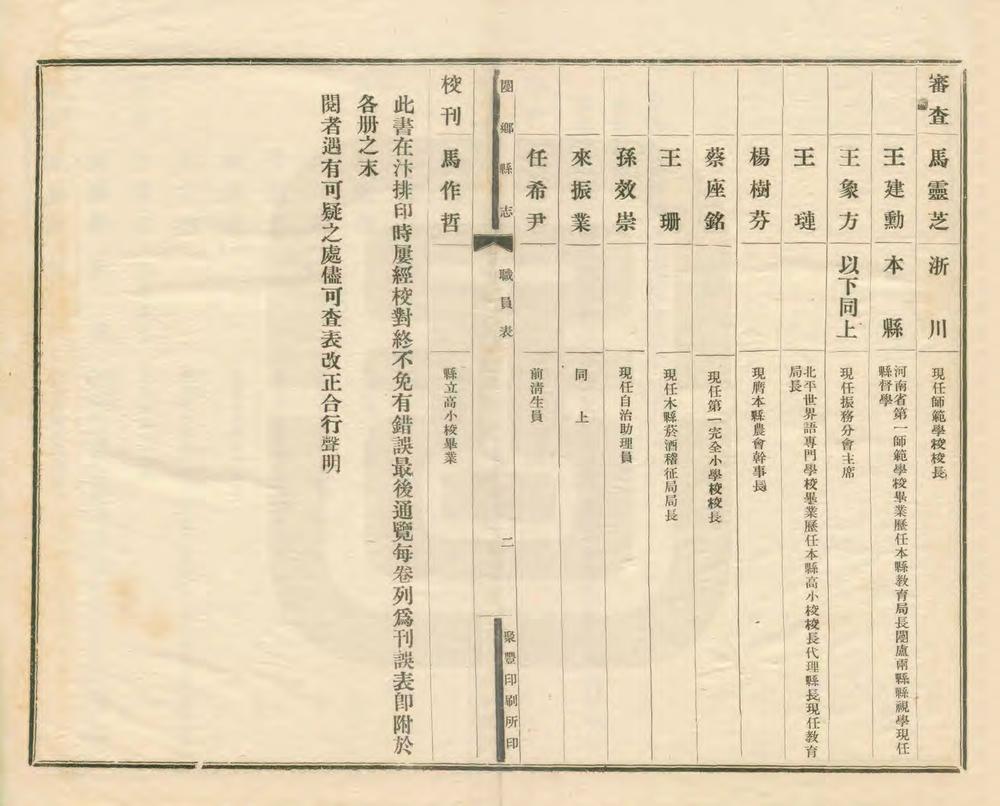 審查　馬靈芝　浙川　現任師範學校校長
王建勳　本縣　河南省第一師範學校畢業歷任本縣敎育局長閿盧兩縣縣視學現任
縣督學
王象方　以下同上　現任振務分會主席
王璉　北平世界語專門學校畢業歷任本縣高小校校長代理縣長現任敎育
局長
楊樹芬　現膺本縣農會幹事長
蔡座銘　現任第一完全小學校校長
王珊　現任本縣菸酒稽征局局長
孫效崇　現任自治助理員
來振業　同上
任希尹　前清生員
閿鄉縣志　職員表　二　聚豐印刷所印
校刊　馬作哲　縣立高小校畢業
此書在汴排印時屢經校對終不免有錯誤最後通覽每卷列爲刊誤表卽附於
各册之末
閱者遇有可疑之處儘可查表改正合行聲明